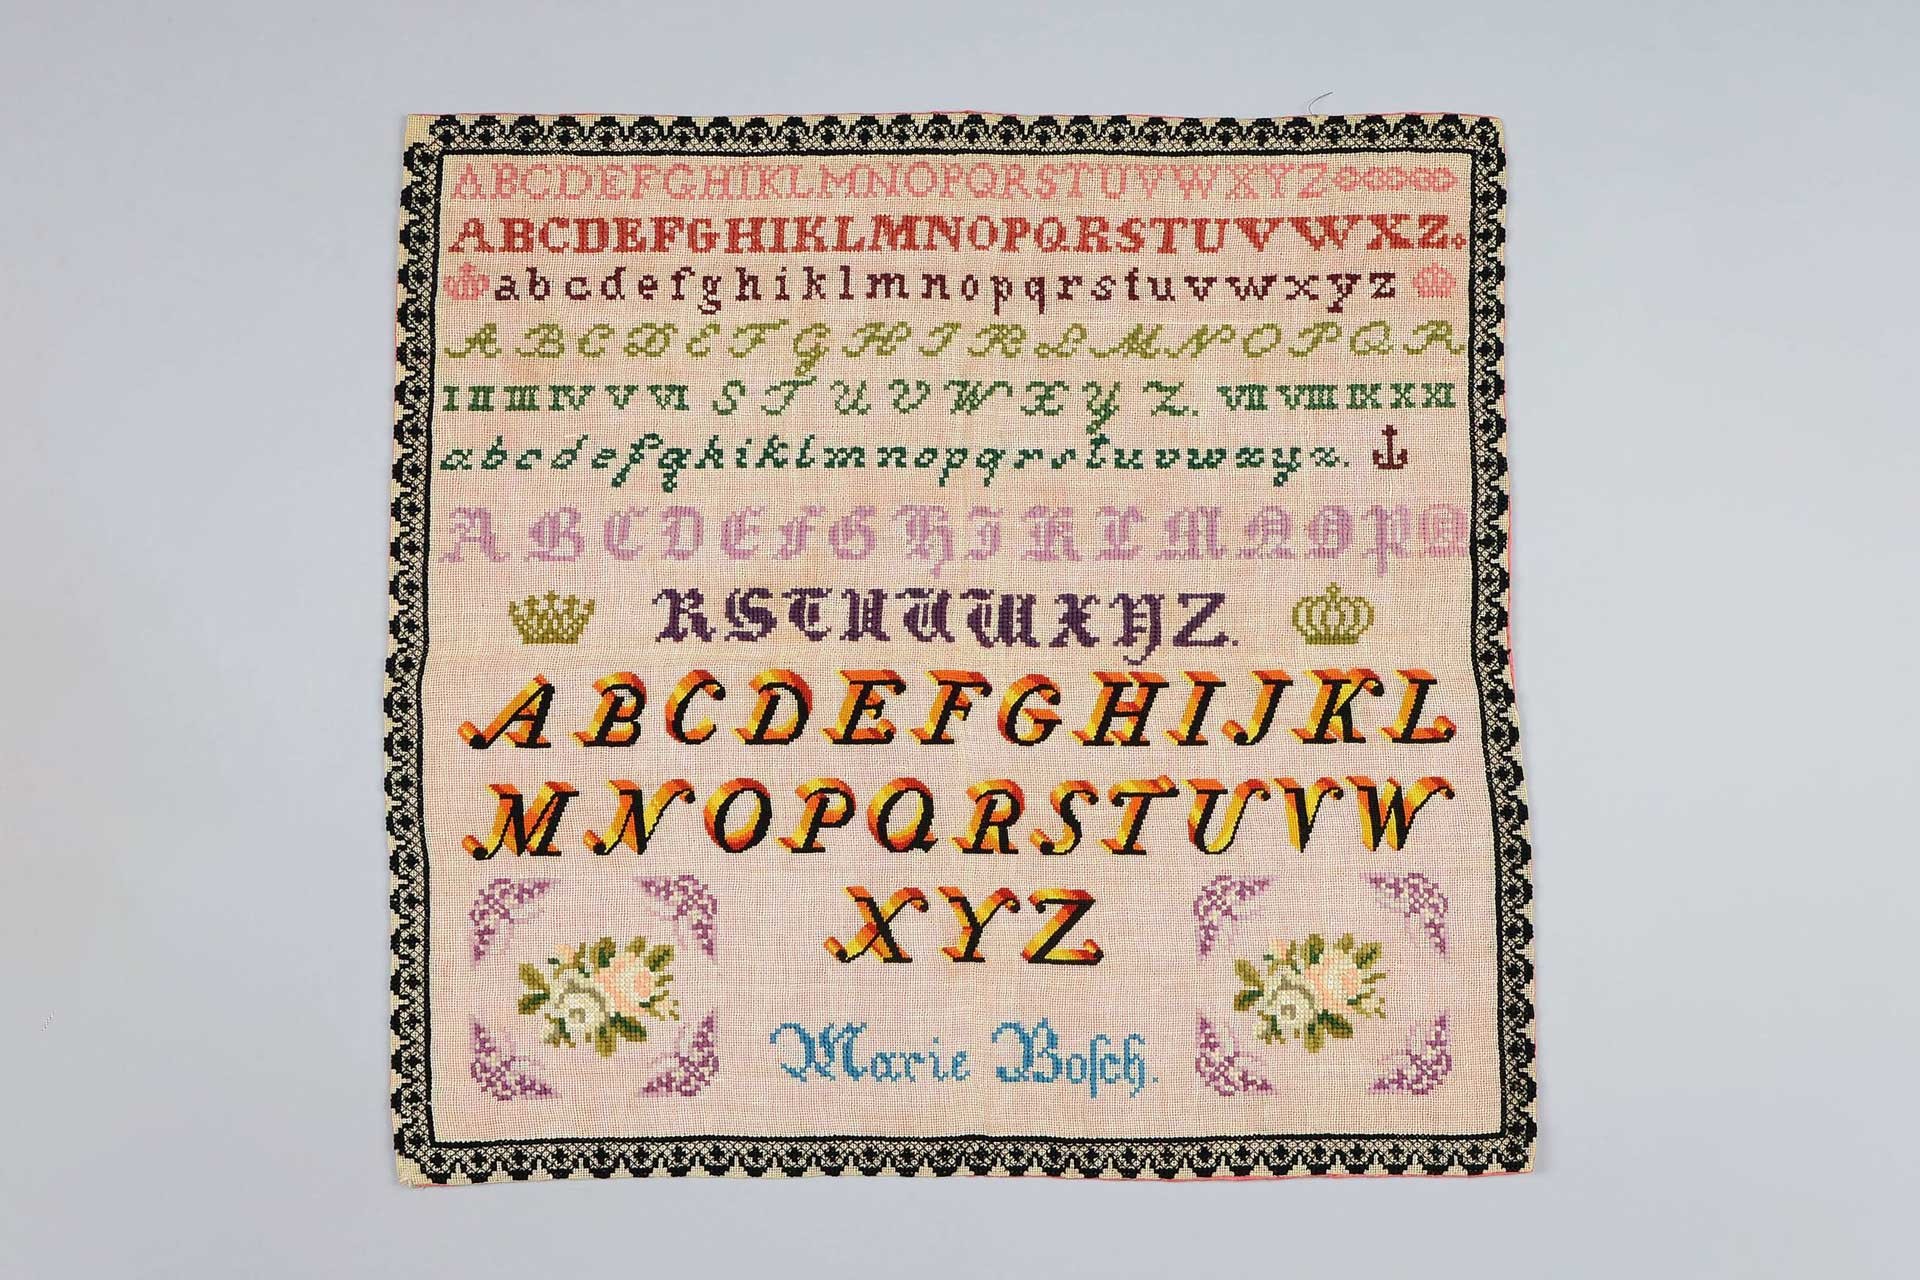 ABCDEFGHIKLMNOPQRSTUVWXYZ
ABCDEFGHIKLMNOPQRSTUVWXZ.
abcdefghiklmnopqrstuvwxyz
ABCDEFGHIKLMNOPQR
I II III IV V VI STUVWXYZ. VII VIII IX X XI
abcdefghiklmnopqrstuvwxyz.
ABCDEFGHIKLMNOPQ
RSTUVWXYZ.
ABCDEFGHIJKL
MNOPQRSTUVW
XYZ
Marie Boſch.